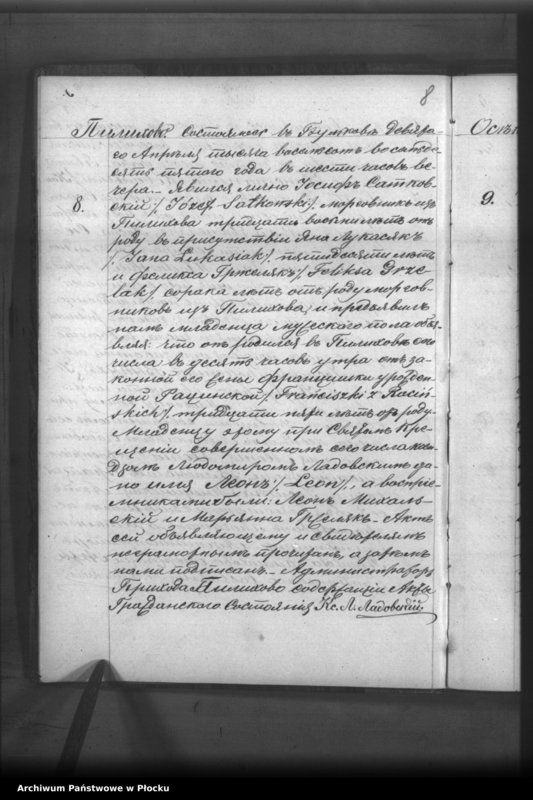 8
Пилиховъ Состоялось въ Глумковѣ Девята-
го Апрѣля тысяча восемьсотъ восемьде-
сятъ пятого года въ шести часовъ ве-
чера. Явился лично Іосифъ Сатков-
8. скій /Józef Satkowski/, морговникъ изъ
9.
Пилихова тридцати восьми лѣтъ отъ
роду въ присутствіи Яна Лукасякъ
/Jana Łukasiak/ пятидесяти лѣтъ
и феликса Гржелякъ /Feliksa Grze-
lak/ сорока лѣтъ отъ роду моргов-
никовъ изъ Пилихова, и предъявилъ
намъ младенца мужескаго пола объя-
вляя: что онъ родился въ Пилиховѣ сего
числа въ десять часовъ утра отъ за-
конной его жены францишки урожден-
ной Рацинской /Franciszki z Raciń-
skich/ тридцати пяти лѣтъ отъ роду.
Младенцу этому при Святомъ Кре-
щеніи совершенномъ сего числа
Людомиромъ Ладовскимъ да-
но имя Леонъ /Leon/, а воспріе-
мниками были: Леонъ Михаль-
скій и Маріянна Гржелякъ. Актъ
сей объявляющему и свидѣтелямъ
неграмотнымъ прочитанъ, а затѣмъ
нами подписанъ. Администраторъ
Прихода Пилихово содержащій Акты
Гражданскаго Состоянія Кс. Л. Ладовскій
Archiwum Państwowe w Płocku